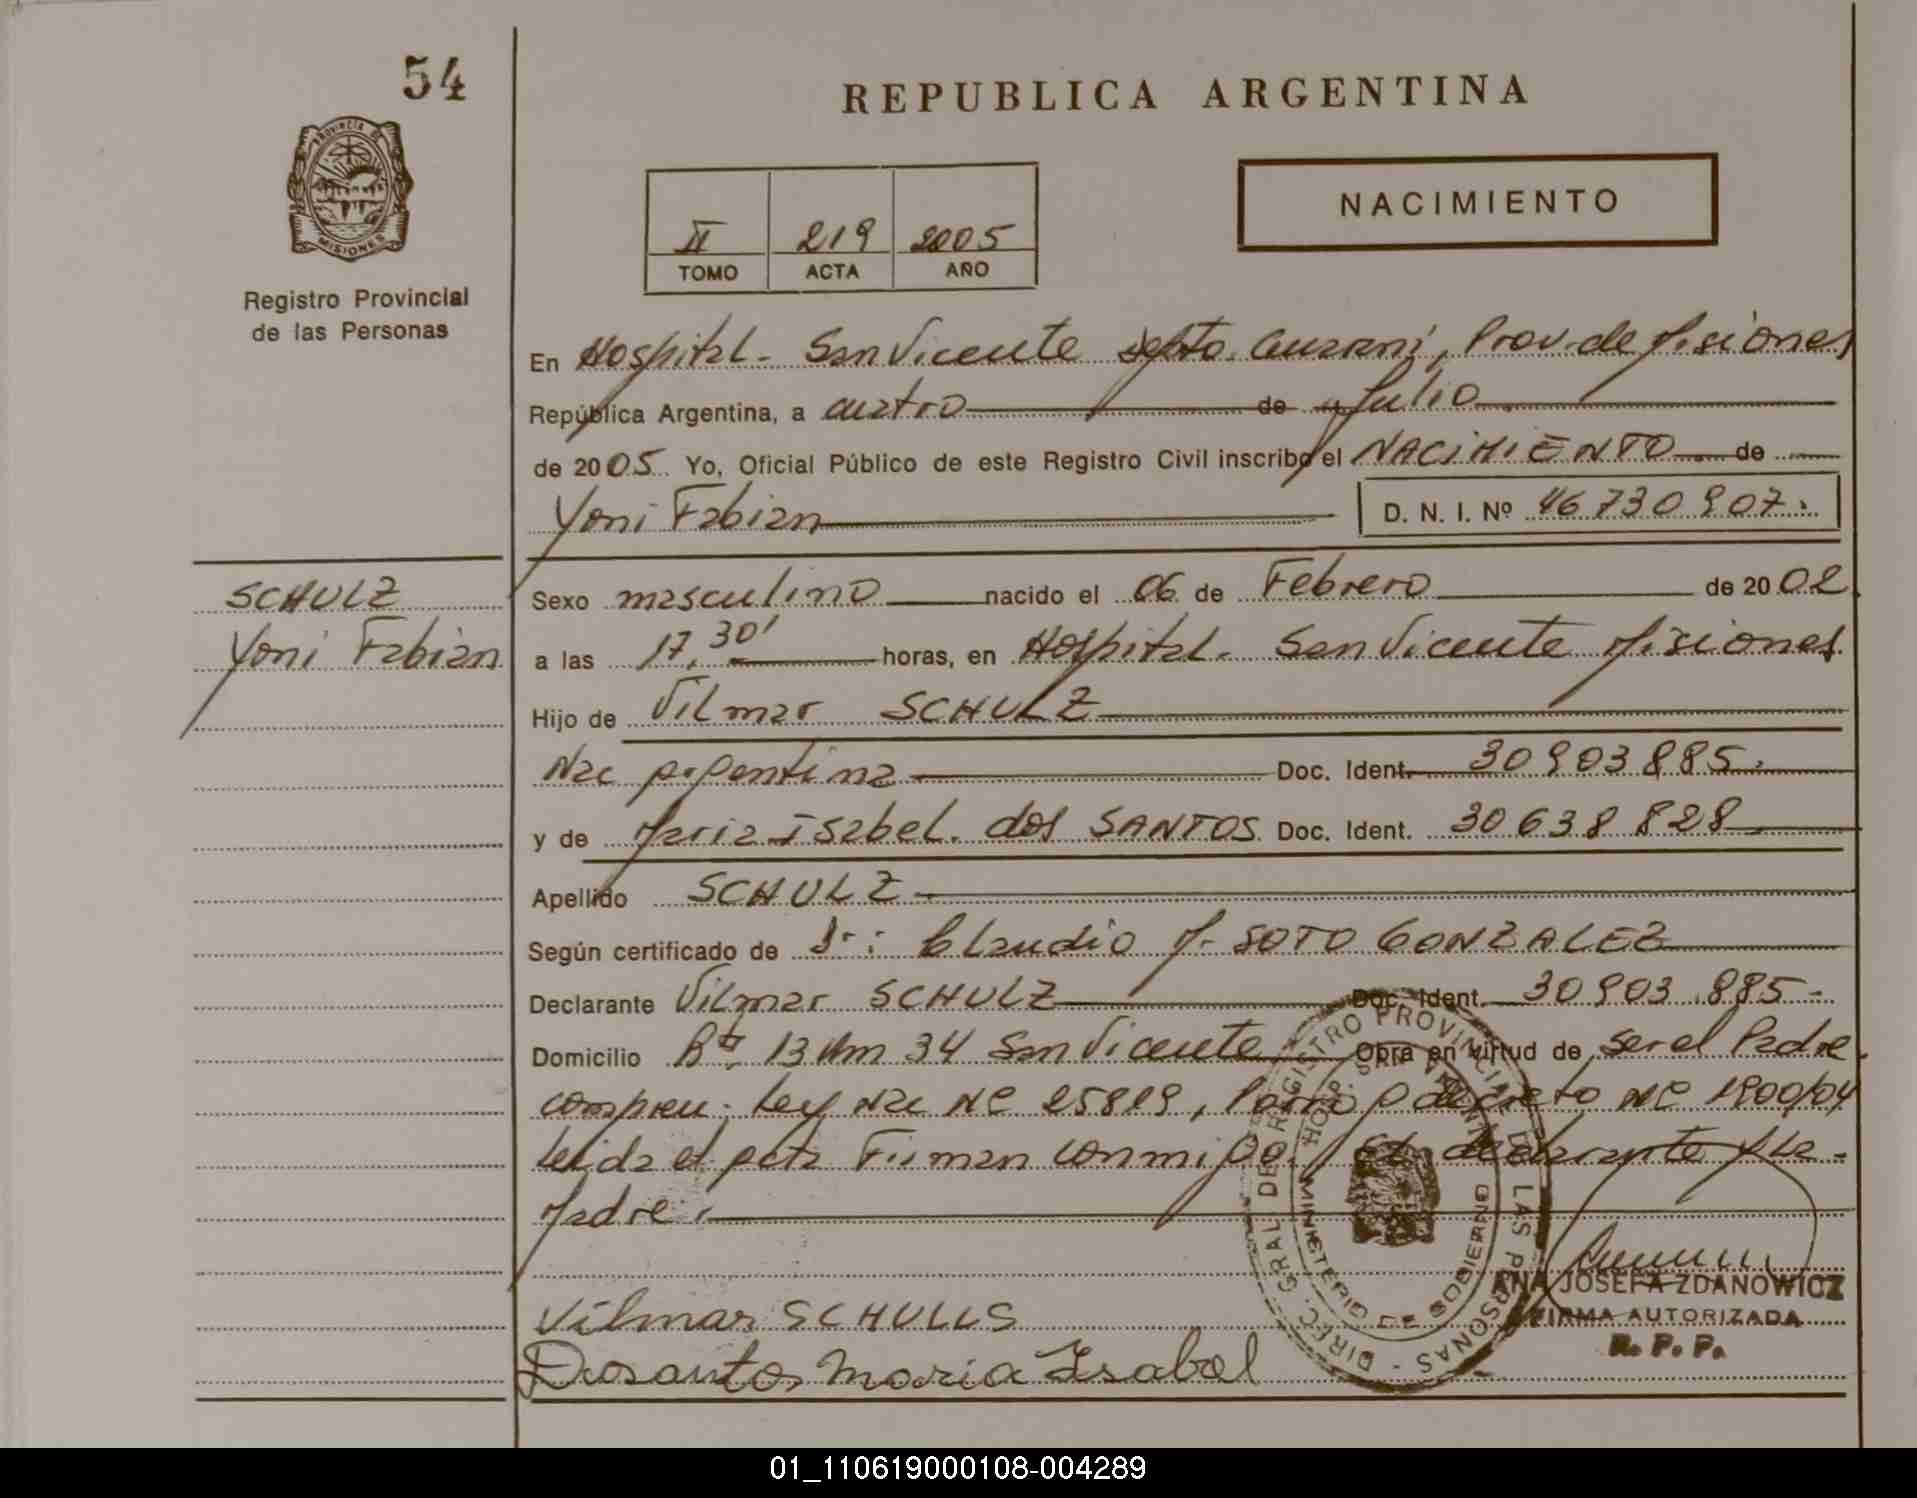 54
REPUBLICA ARGENTINA
PROVINCIA DE
MISIONES
Registro Provincial
de las Personas
II 219 2005
TOMO ACTA AÑO
NACIMIENTO
En Hospital - San Vicente Depto. Guarani, Prov. de Misiones
República Argentina, a cuatro de Julio
de 2005 Yo, Oficial Público de este Registro Civil inscribo el NACIMIENTO de
Yoni Fabian D. N. I. Nº 46.730.907.
SCHULZ
Yoni Fabian
Sexo masculino nacido el 06 de Febrero de 2002
a las 17,30' horas, en Hospital - San Vicente Misiones
Hijo de Vilmar SCHULZ
Nac Argentina Doc. Ident. 30903885.
y de Maria Isabel. dos SANTOS Doc. Ident. 30638828
Apellido SCHULZ
Según certificado de Dr: Claudio M. SOTO GONZALEZ
Declarante Vilmar SCHULZ Doc. Ident. 30903.885-
Domicilio Rta 13 Km 34 San Vicente Obra en virtud de ser el Padre
Ley Nac Nº 25819, decreto Nº 1900/04
leida el acta Firman conmigo. El declarante y la
Madre.
Vilmar SCHULLS
Dosantos Maria Isabel
DIREC. GRAL DE REGISTRO PROVINCIAL DE LAS PERSONAS -
HOP. SAN VICENTE
MINISTERIO DE GOBIERNO
ANA JOSEFA ZDANOWICZ
FIRMA AUTORIZADA
R. P. P.
01_110619000108-004289